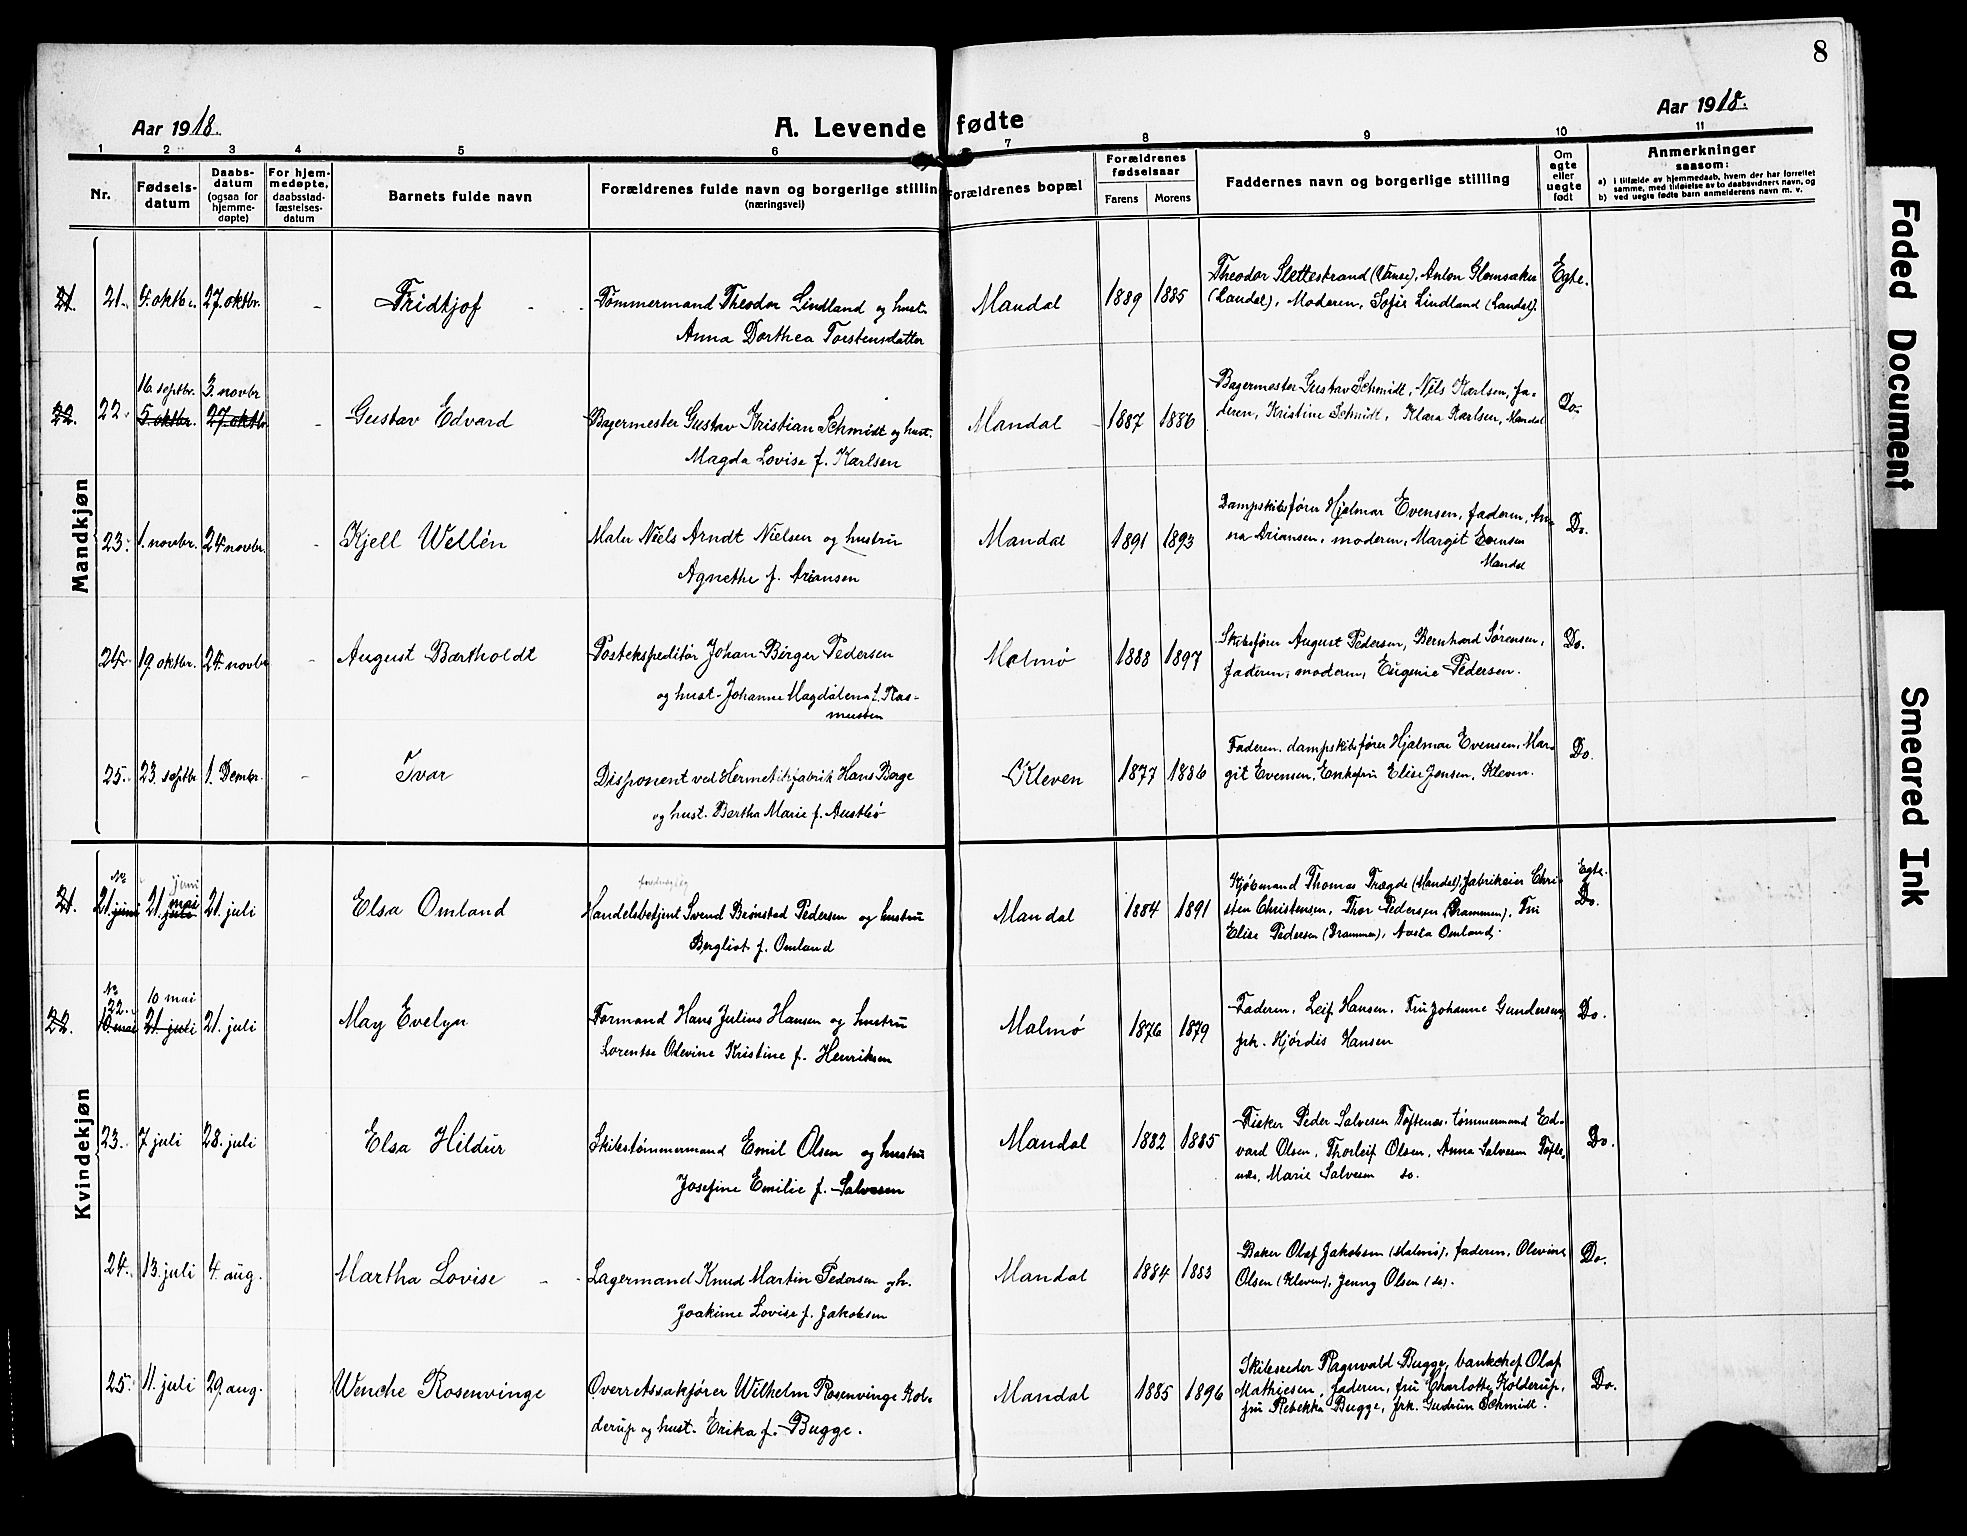 8
Aar 1918.
A. Levende fødte
Aar 1918.
1 2 3 4 5 6 7 8 9 10 11
Nr.
Fødsels-
datum
Daabs-
datum
(ogsaa for
hjemme-
døpte)
For hjem-
medøpte,
daabsstad-
fæstelses-
datum
Barnets fulde navn
Forældrenes fulde navn og borgerlige stilling
(næringsvei)
Forældrenes bopæl
Forældrenes
fødselsaar
Farens Morens
Faddernes navn og borgerlige stilling
Om
egte
eller
uegte
født
Anmerkninger
saasom:
a) i tilfælde av hjemmedaab, hvem der har forrettet
samme, med tilføielse av to daabsvidners navn, og
b) ved uegte fødte barn anmelderens navn m. v.
Mandkjøn
21. 21. 9. oktbr. 27. oktbr. - Fridtjof - - Tømmermand Theodor Lindland og hust. Mandal 1889 1885 Theodor Slettestrand (Vanse), Anton Glomsaker Egte.
Anna Dorthea Torstensdatter (Landal), Moderen, Sofie Lindland (Landal).
16. septbr. 3. novbr
22. 22. 5. oktbr. 27. oktbr - Gustav Edvard Bagermester Gustav Kristian Schmidt og hust. Mandal - 1887 1886 Bagermester Gustav Schmidt, Nils Karlsen, fa- Do.
Magda Lovise f. Karlsen deren, Kristine Schmidt, Klara Karlsen, Mandal
23. 1. novbr. 24. novbr. - Kjell Wellén Maler Niels Arndt Nielsen og hustru Mandal 1891 1893 Dampskibsfører Hjalmar Evensen, faderen, An- Do.
Agnethe f. Ariansen na Ariansen, moderen, Margit Evensen
Mandal
24. 19 oktbr. 24. novbr - August Bartholdt Postekspeditør Johan Birger Pedersen Malmø 1888 1897 Skibsfører August Pedersen, Bernhard Sørensen, Do.
og hust. Johanne Magdalena f. Ras- faderen, moderen, Eugenie Pedersen.
mussen
25. 23. septbr 1. Dembr. - Ivar Disponent ved Hermetikfabrik Hans Berge Kleven 1877 1886 Faderen, dampskibsfører Hjalmar Evensen, Mar- Do.
og hust. Bertha Marie f. Austbø git Evensen, Enkefru Elise Jensen, Kleven.
Kvindekjøn
No juni mai Egte.
21. 21. juni 21. juli 21. juli Elsa Omland Handelsbetjent Svend Brønstad Pedersen og hustru Mandal 1884 1891 Kjøbmand Thomas Trægde (Mandal), fabrikeier Chri- Do.
Bergliot f. Omland sten Christensen, Thor Pedersen (Drammen), Fru
Elise Pedersen (Drammen), Aasta Omland.
No 10 mai
22. 22. 10. mai 21 juli 21. juli May Evelyn Formand Hans Julius Hansen og hustru Malmø 1876 1879 Faderen, Leif Hansen, Fru Johanne Gundersen, Do.
Lorentse Olevine Kristine f. Henriksen frk. Hjørdis Hansen
23. 7 juli 28. juli Elsa Hildur Skibstømmermand Emil Olsen og hustru Mandal 1882 1885 Fisker Peder Salvesen Toftenes, tømmermand Ed- Do.
Josefine Emilie f. Salvesen vard Olsen, Thorleif Olsen, Anna Salvesen Tofte-
nes, Marie Salvesen do.
24. 13. juli 4. aug. Martha Lovise - - Lagermand Knud Martin Pedersen og h. Mandal 1884 1883 Baker Olaf Jakobsen (Malmø), faderen, Olevine Do.
Joakime Lovise f. Jakobsen Olsen (Kleven), Jenny Olsen (do).
25. 11. juli 29. aug. Wenche Rosenvinge Overretssakfører Wilhelm Rosenvinge Kol- Mandal 1885 1896 Skibsreder Ragnvald Bugge, bankchef Olaf Do.
derup og hust. Erika f. Bugge. Mathiesen, faderen, fru Charlotte Kolderup,
fru Rebekka Bugge, frk. Gudrun Schmidt.
Faded Document
Smeared Ink